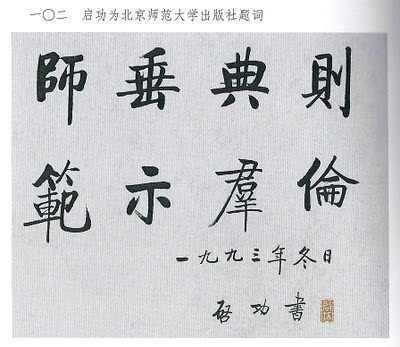 一〇二 启功为北京师范大学出版社题词
師垂典則
範示羣倫
一九九三年冬日
启功書